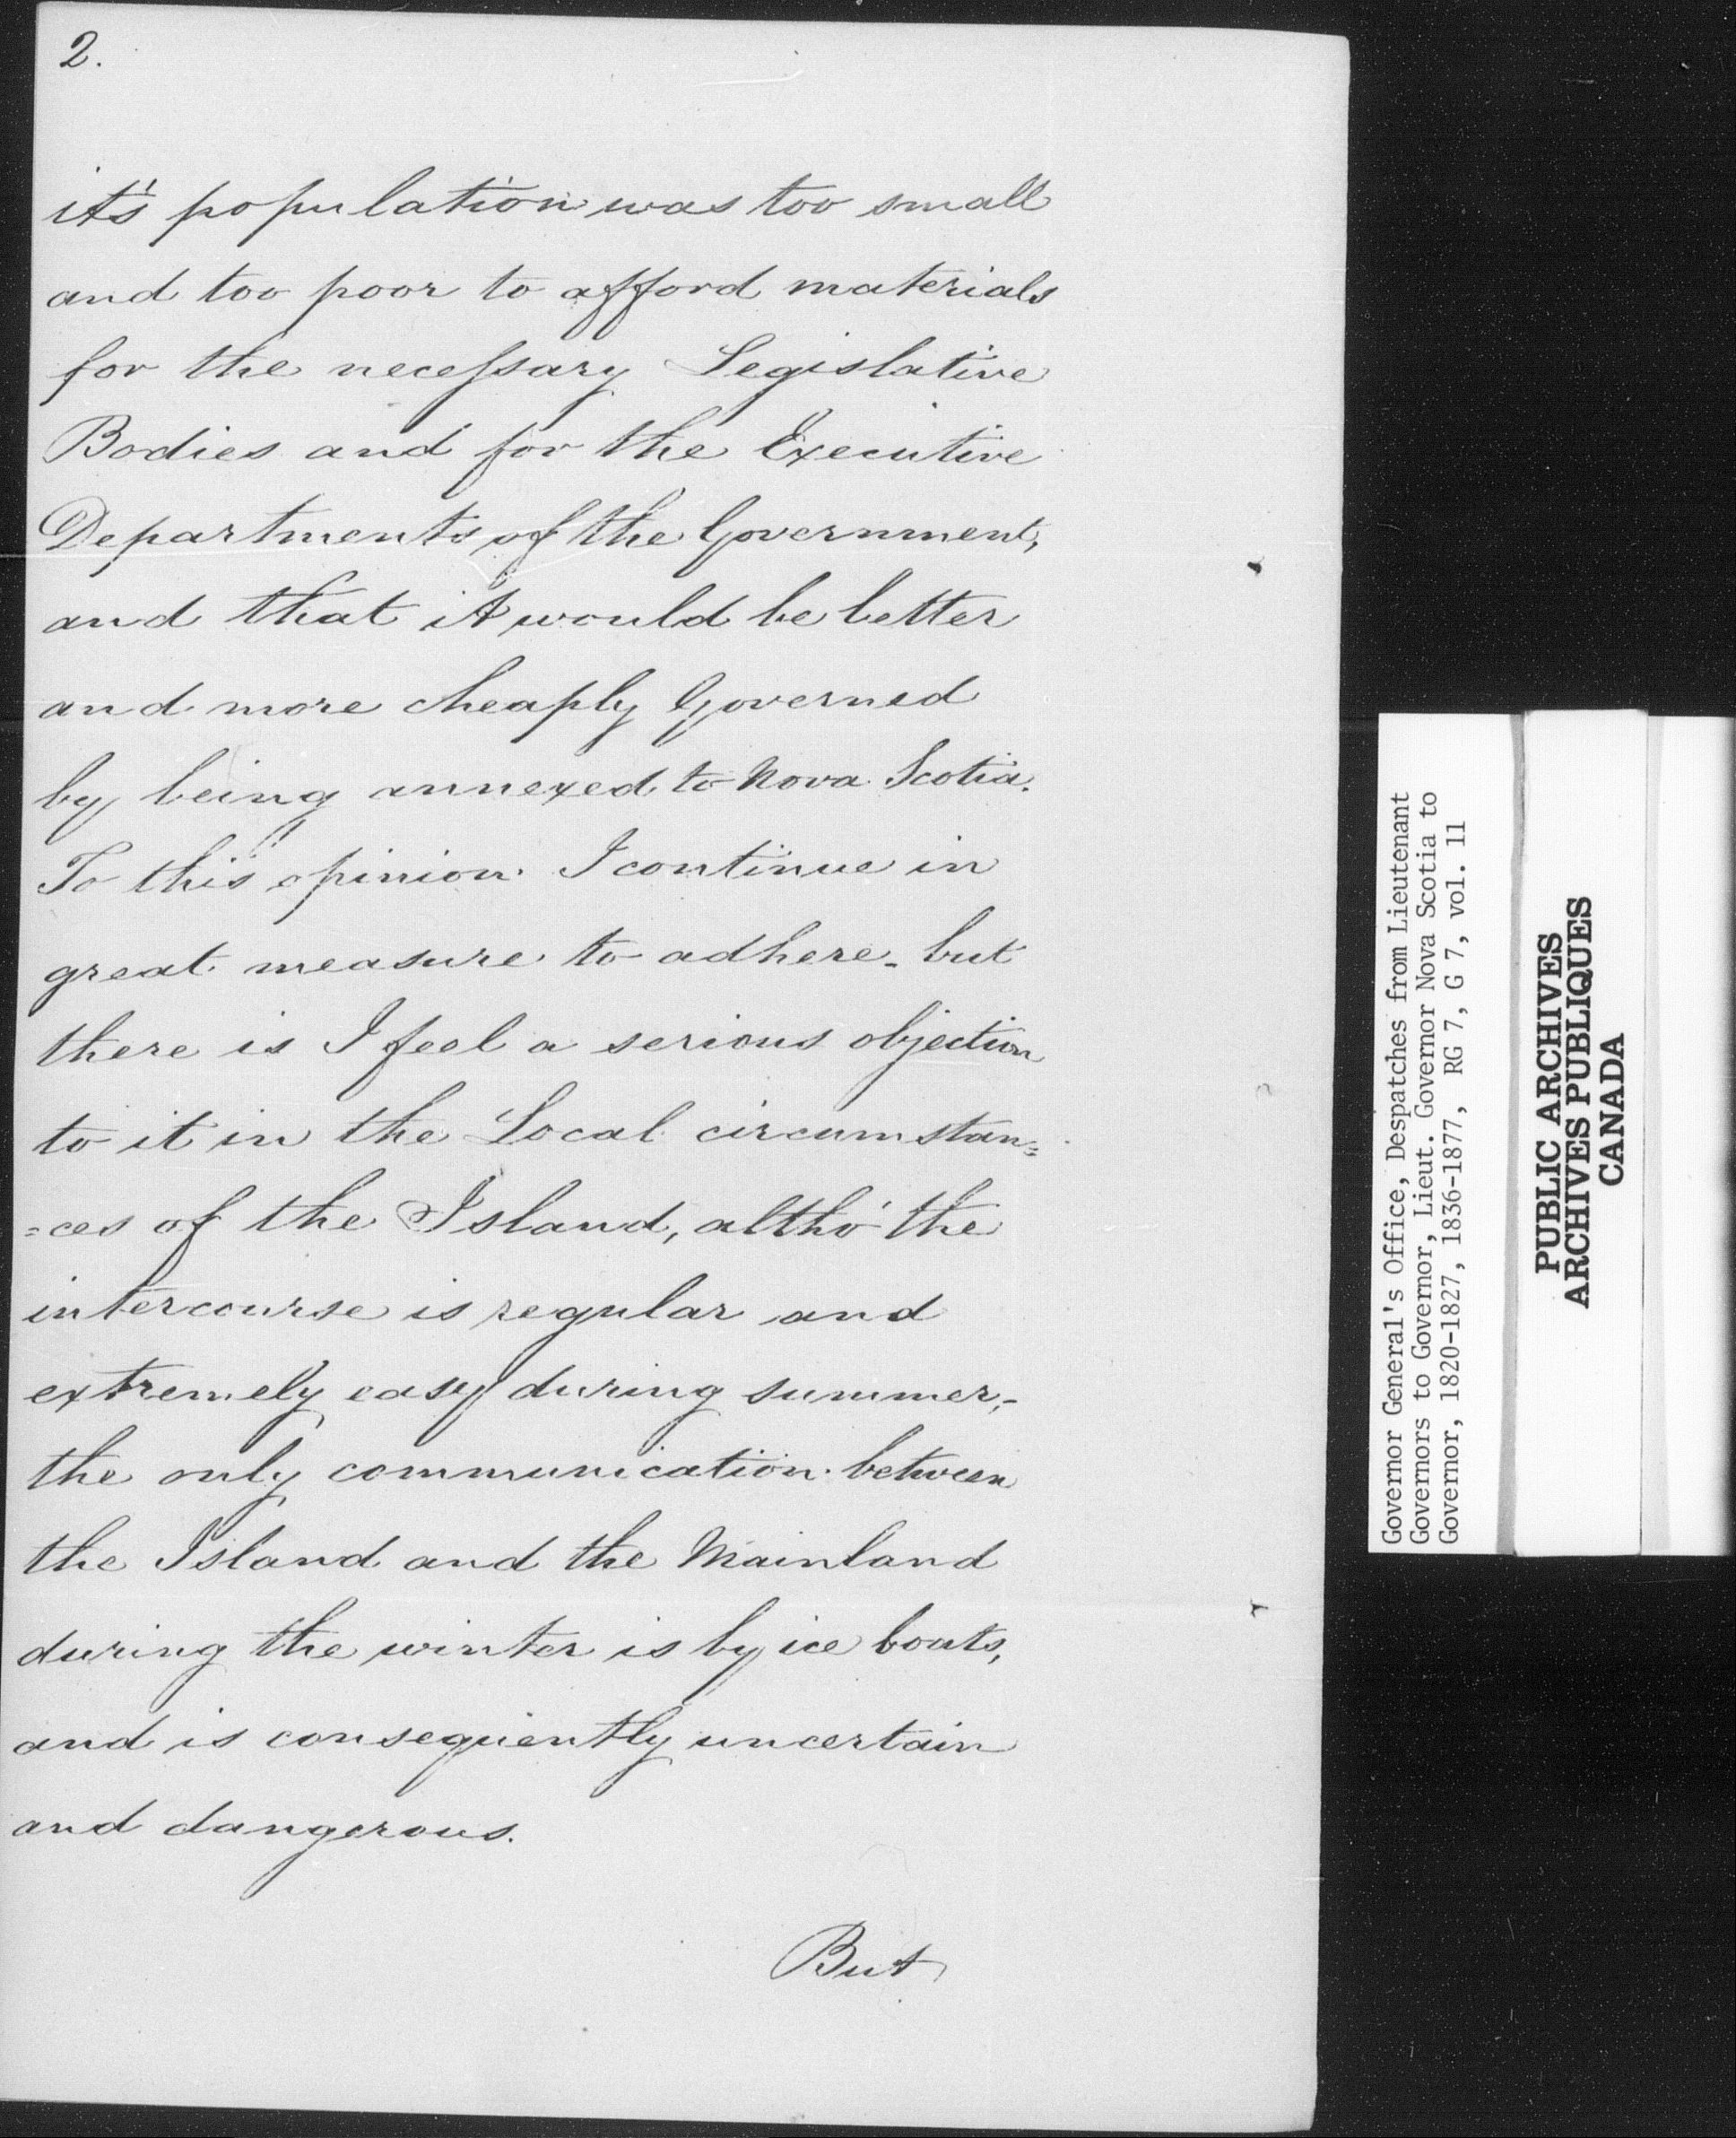 2.
it's population was too small
and too poor to afford materials
for the necessary Legislative
Bodies and for the Executive
Departments of the Government,
and that it would be better
and more cheaply Governed
by being annexed to Nova Scotia.
To this opinion I continue in
great measure to adhere - but
there is I feel a serious objection
to it in the Local circumstan=
=ces of the Island, altho' the
intercourse is regular and
extremely easy during summer,-
the only communication between
the Island and the Mainland
during the winter is by ice boats,
and is consequently uncertain
and dangerous.
But
Governor General's Office, Despatches from Lieutenant
Governors to Governor, Lieut. Governor Nova Scotia to
Governor, 1820-1827, 1836-1877, RG 7, G 7, vol. 11
PUBLIC ARCHIVES
ARCHIVES PUBLIQUES
CANADA